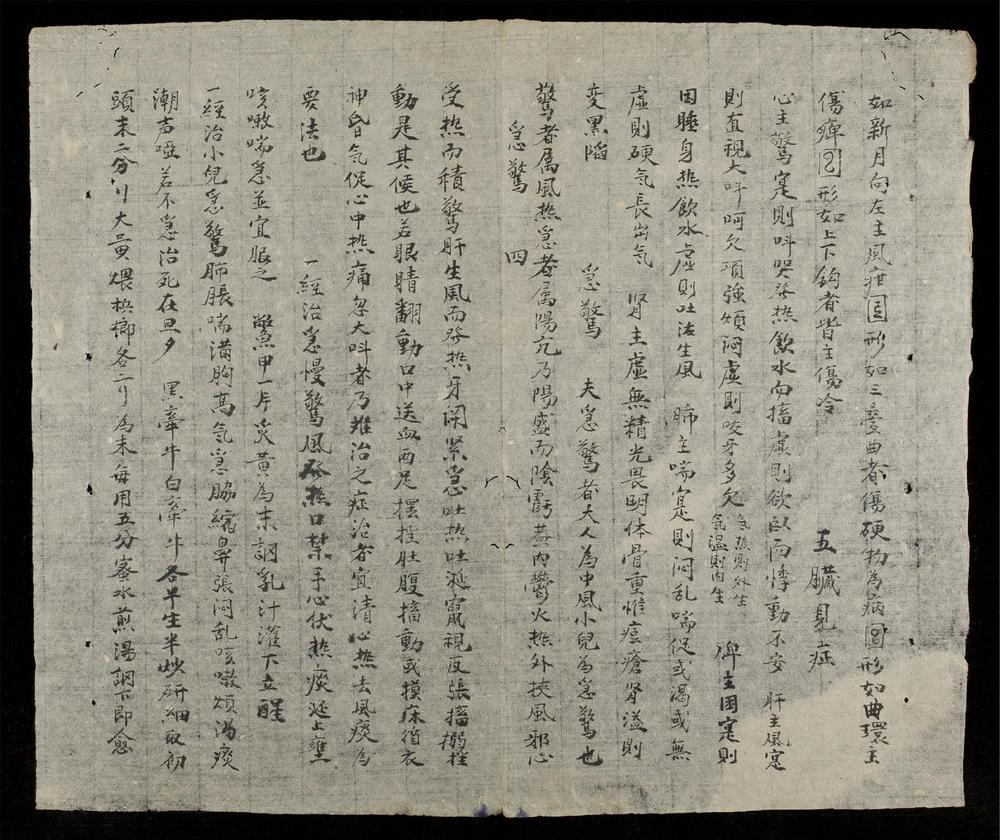 如新月向左主風疳 形如三弯曲者傷硬物為病 形如曲環主
傷癉 形如上下鈎者皆主傷冷 五臟見症
心主驚寔則呌哭發熱飲水而搐虛則欲臥而悸動不安 肝主風寔
則直視大呌呵欠項強煩悶虛則咬牙多欠氣熱則外生氣溫則內生 脾主困寔則
困睡身热飲水虛則吐法生風 肺主喘寔則悶乱喘促或渴或無
虛則硬气長出气 肾主虛無精光畏明体骨重惟痘瘡肾溢則
变黑陷 急驚 夫急驚者大人為中風小兒為急驚也
驚者属風热急者属陽亢乃陽盛而陰虧蓋內鬱火热外挾風邪心
急驚 四
受热而積驚肝生風而發热牙関紧急吐热吐涎竄視反張搐搦拴
動是其候也若眼睛翻動口中送血两足擺拴肚腹搐動或摸床循衣
神昏气促心中热痛忽大呌者乃难治之症治者宜清心热去風痰為
要法也 一經治急慢驚風發热口禁手心伏热痰涎上壅
咳嗽喘急並宜服之 鱉甲一片炙黄為末調乳汁灌下立醒
一經治小兒急驚肺脹喘滿胸高气急脇縮鼻張悶乱咳嗽煩渴痰
潮声啞若不急治死在旦夕 黑牽牛白牽牛各半生半炒研細取初
頭末二分 大黄煨梹榔各二 為末每用五分蜜水煎湯調下即愈